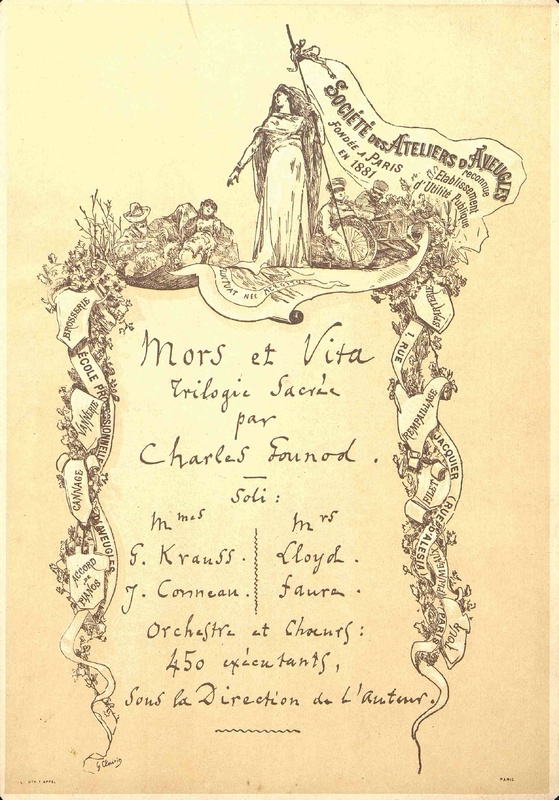 SOCIÉTÉ DES ATELIERS D'AVEUGLES
FONDÉE A PARIS
EN 1881
reconnue
Etablissement
d'Utilité Publique
FLUCTUAT NEC MERGITUR
BROSSERIE
ÉCOLE PROFESSIONNELLE
VANNERIE
CANNAGE
D'AVEUGLES
ACCORD
DE
PIANOS
1, RUE
REMPAILLAGE
JACQUIER
FILET
(RUE D'ALESIA)
PARIS
Mors et Vita
Trilogie Sacrée
par
Charles Gounod.
Soli:
Mmes Mrs
G. Krauss. Lloyd.
J. Conneau. Faure.
Orchestre et Chœurs:
450 exécutants,
Sous la Direction de L'Auteur.
G. Clairin
LITH. F. APPEL
PARIS